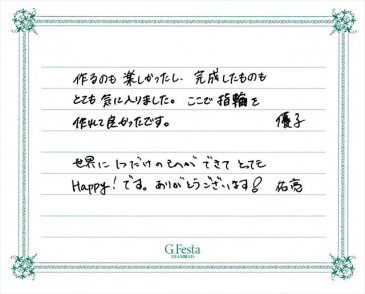 作るのも楽しかったし、完成したものも
とても気に入りました。ここで指輪を
作れて良かったです。 優子
世界に1つだけのものができてとっても
Happy!です。ありがとうございます! 佑亮
G.Festa
DIAMOND